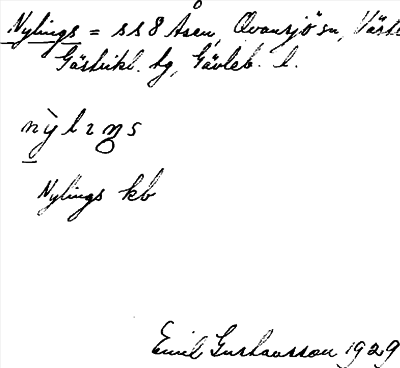 Nylings = ss 8 Åsen, Ovansjö sn, Väst
Gästrikl. tg, Gävleb. l.
nỳlıŋs
Nylings kb
Emil Gustavsson 1929